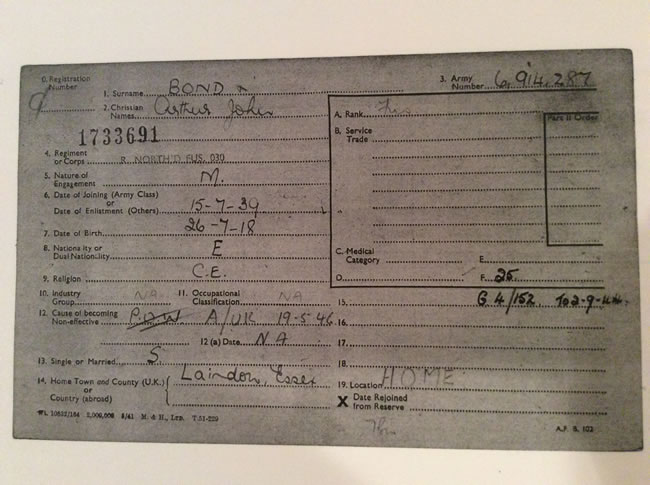 0. Registration Number
1. Surname BOND
3. Army Number 6,914,287
2. Christian Names Arthur John
1733691
A. Rank
Part II Order
B. Service Trade
4. Regiment or Corps R. NORTH'D FUS. 030
5. Nature of Engagement M.
6. Date of Joining (Army Class) or Date of Enlistment (Others) 15-7-39
7. Date of Birth 26-7-18
8. Nationality or Dual Nationality E
C. Medical Category
E
9. Religion C.E.
D
F 25
10. Industry Group NA 11. Occupational Classification NA
15. G 4/152
12. Cause of becoming Non-effective P.O.W A/UK 19-5-46
16.
12 (a) Date NA
17.
13. Single or Married S
18.
14. Home Town and County (U.K.) or Country (abroad) Laindon, Essex
19. Location HOME
X Date Rejoined from Reserve
Wt. 10632/184 2,000,000 8/41 M. & H., LTD. T.51-229
A.F. B. 102